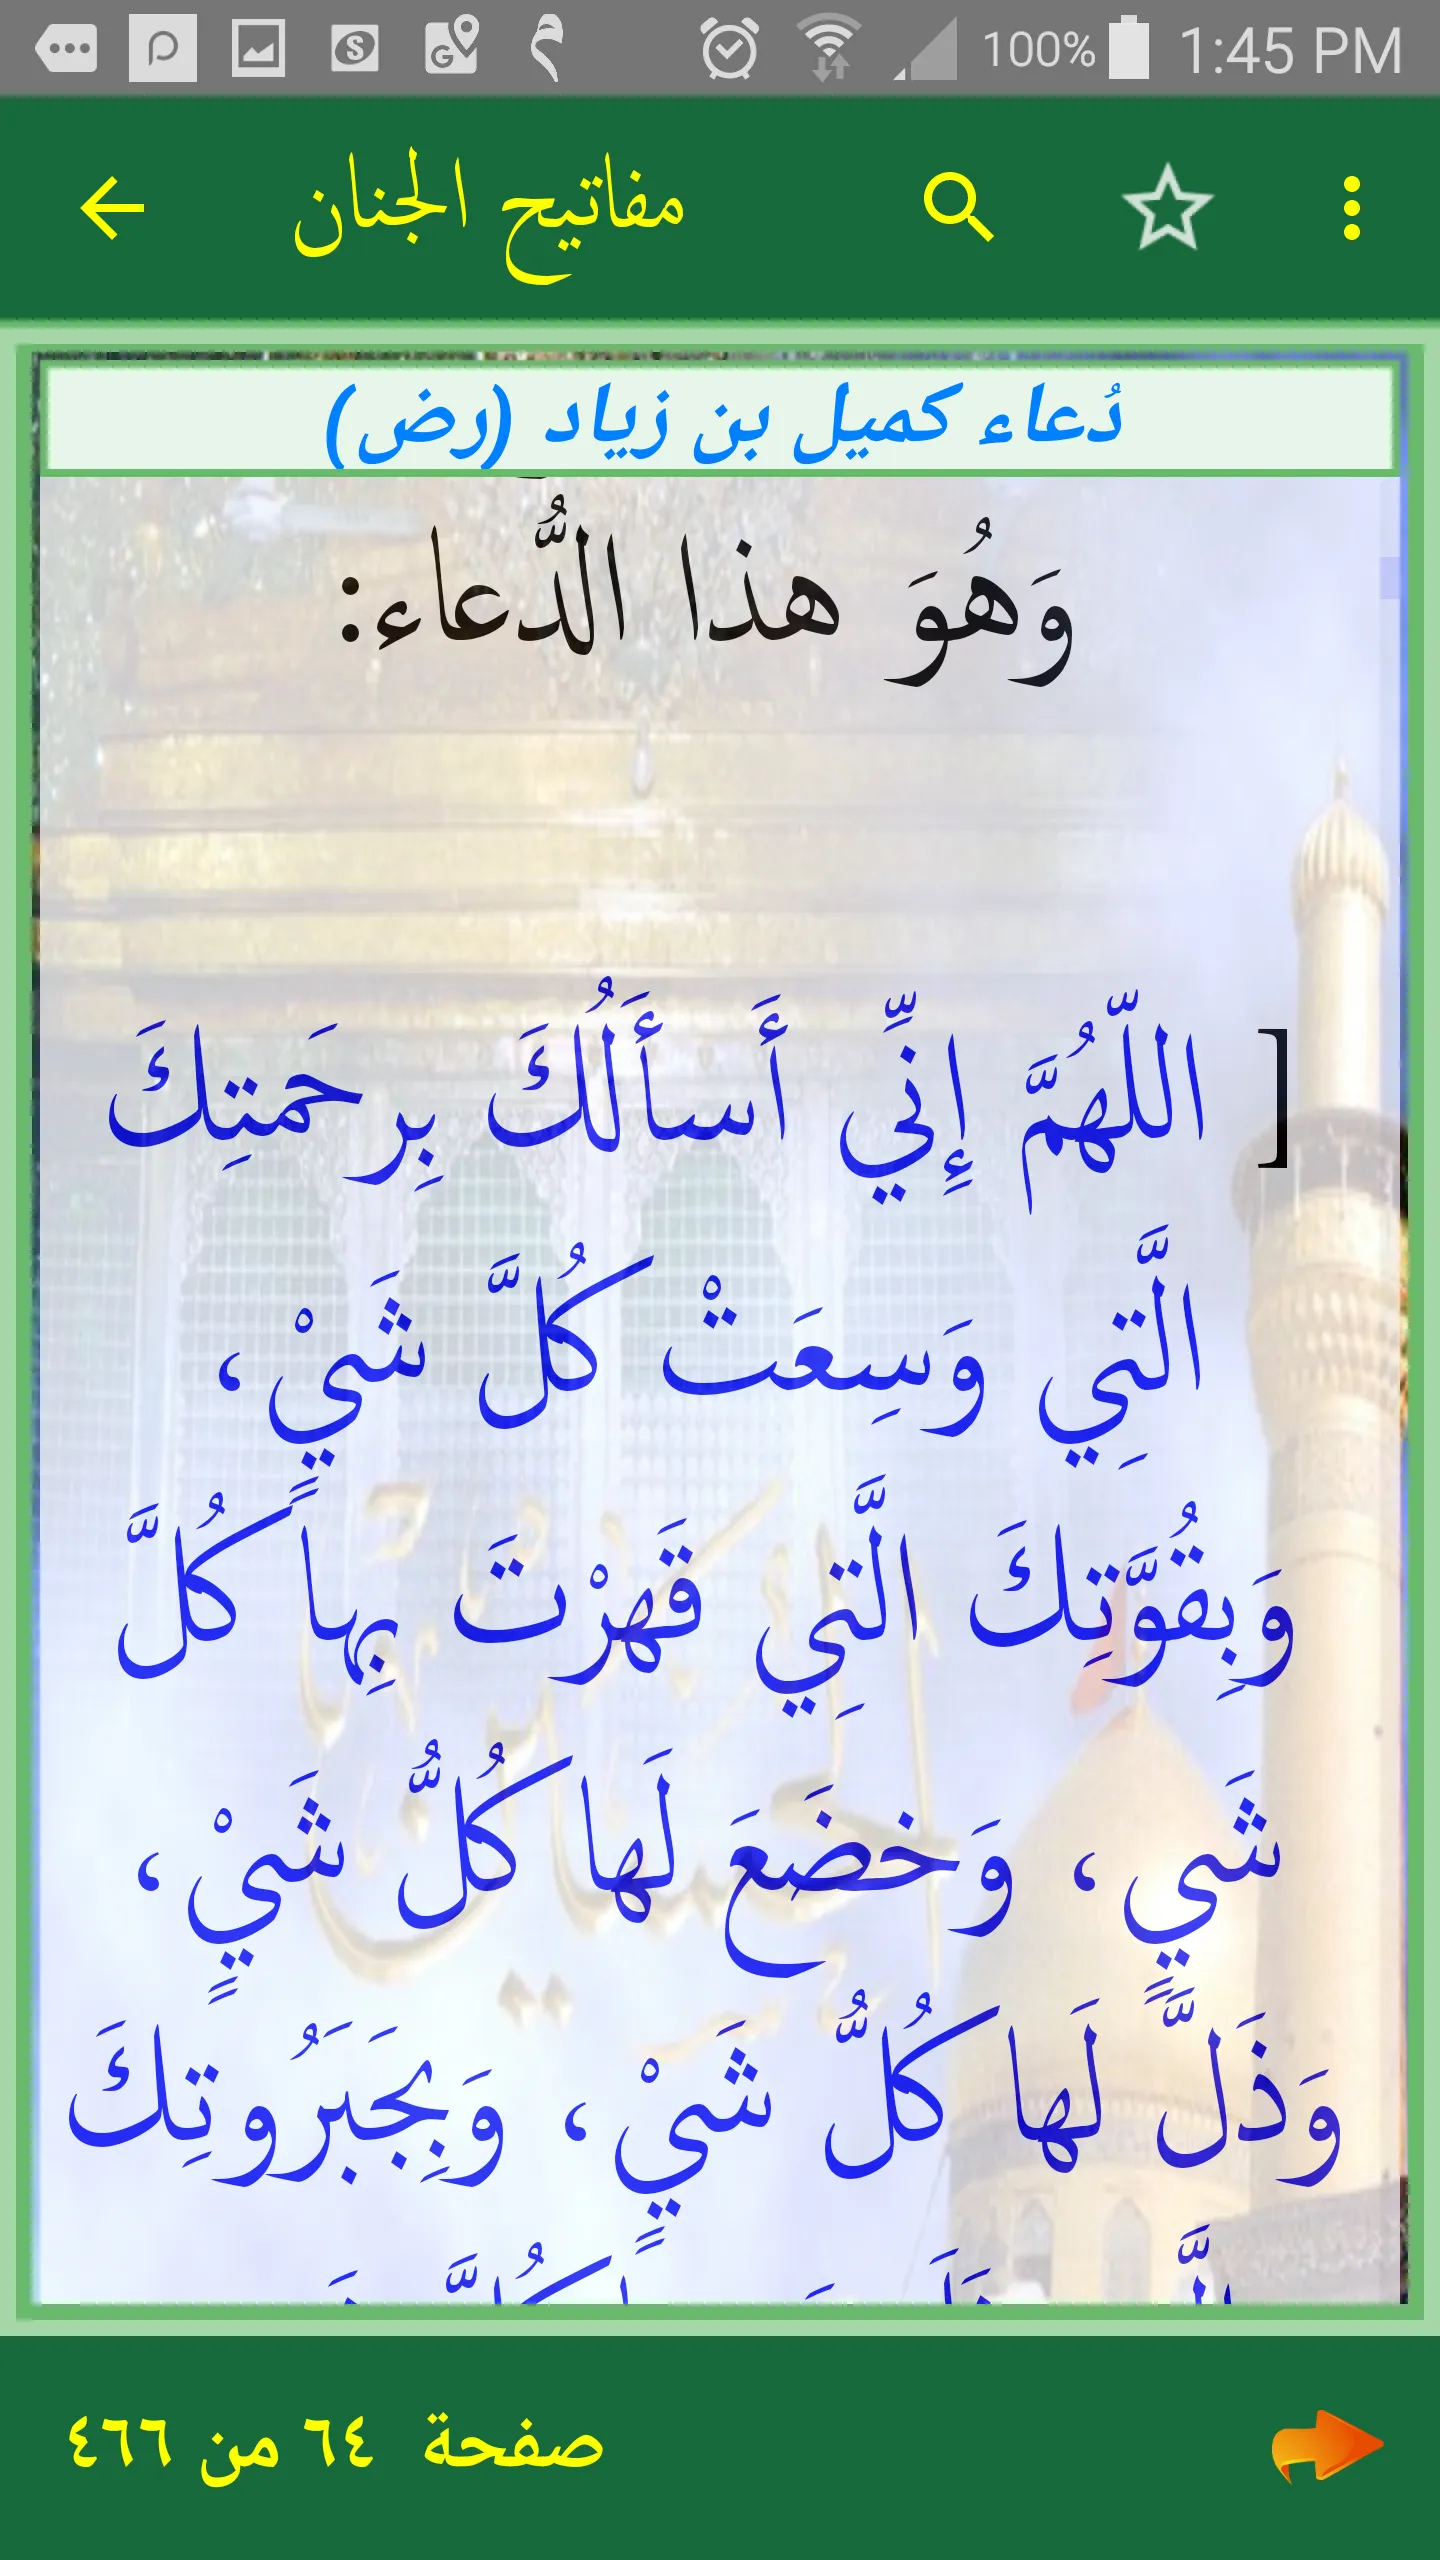 100% 1:45 PM
مفاتيح الجنان
دُعاء كميل بن زياد (رض)
وَهُوَ هذا الدُّعاء:
[ اللّهُمَّ إِنِّي أَسأَلُكَ بِرحَمتِكَ
الَّتِي وَسِعَتْ كُلَّ شَيْيٍ،
وَبِقُوَّتِكَ الَّتِي قَهرْتَ بِها كُلَّ
شَييٍ، وَخضَعَ لَها كُلُّ شَيْيٍ،
وَذَلَّ لَها كُلُّ شَيْيٍ، وَبِجَبَرُوتِكَ
صفحة ٦٤ من ٤٦٦